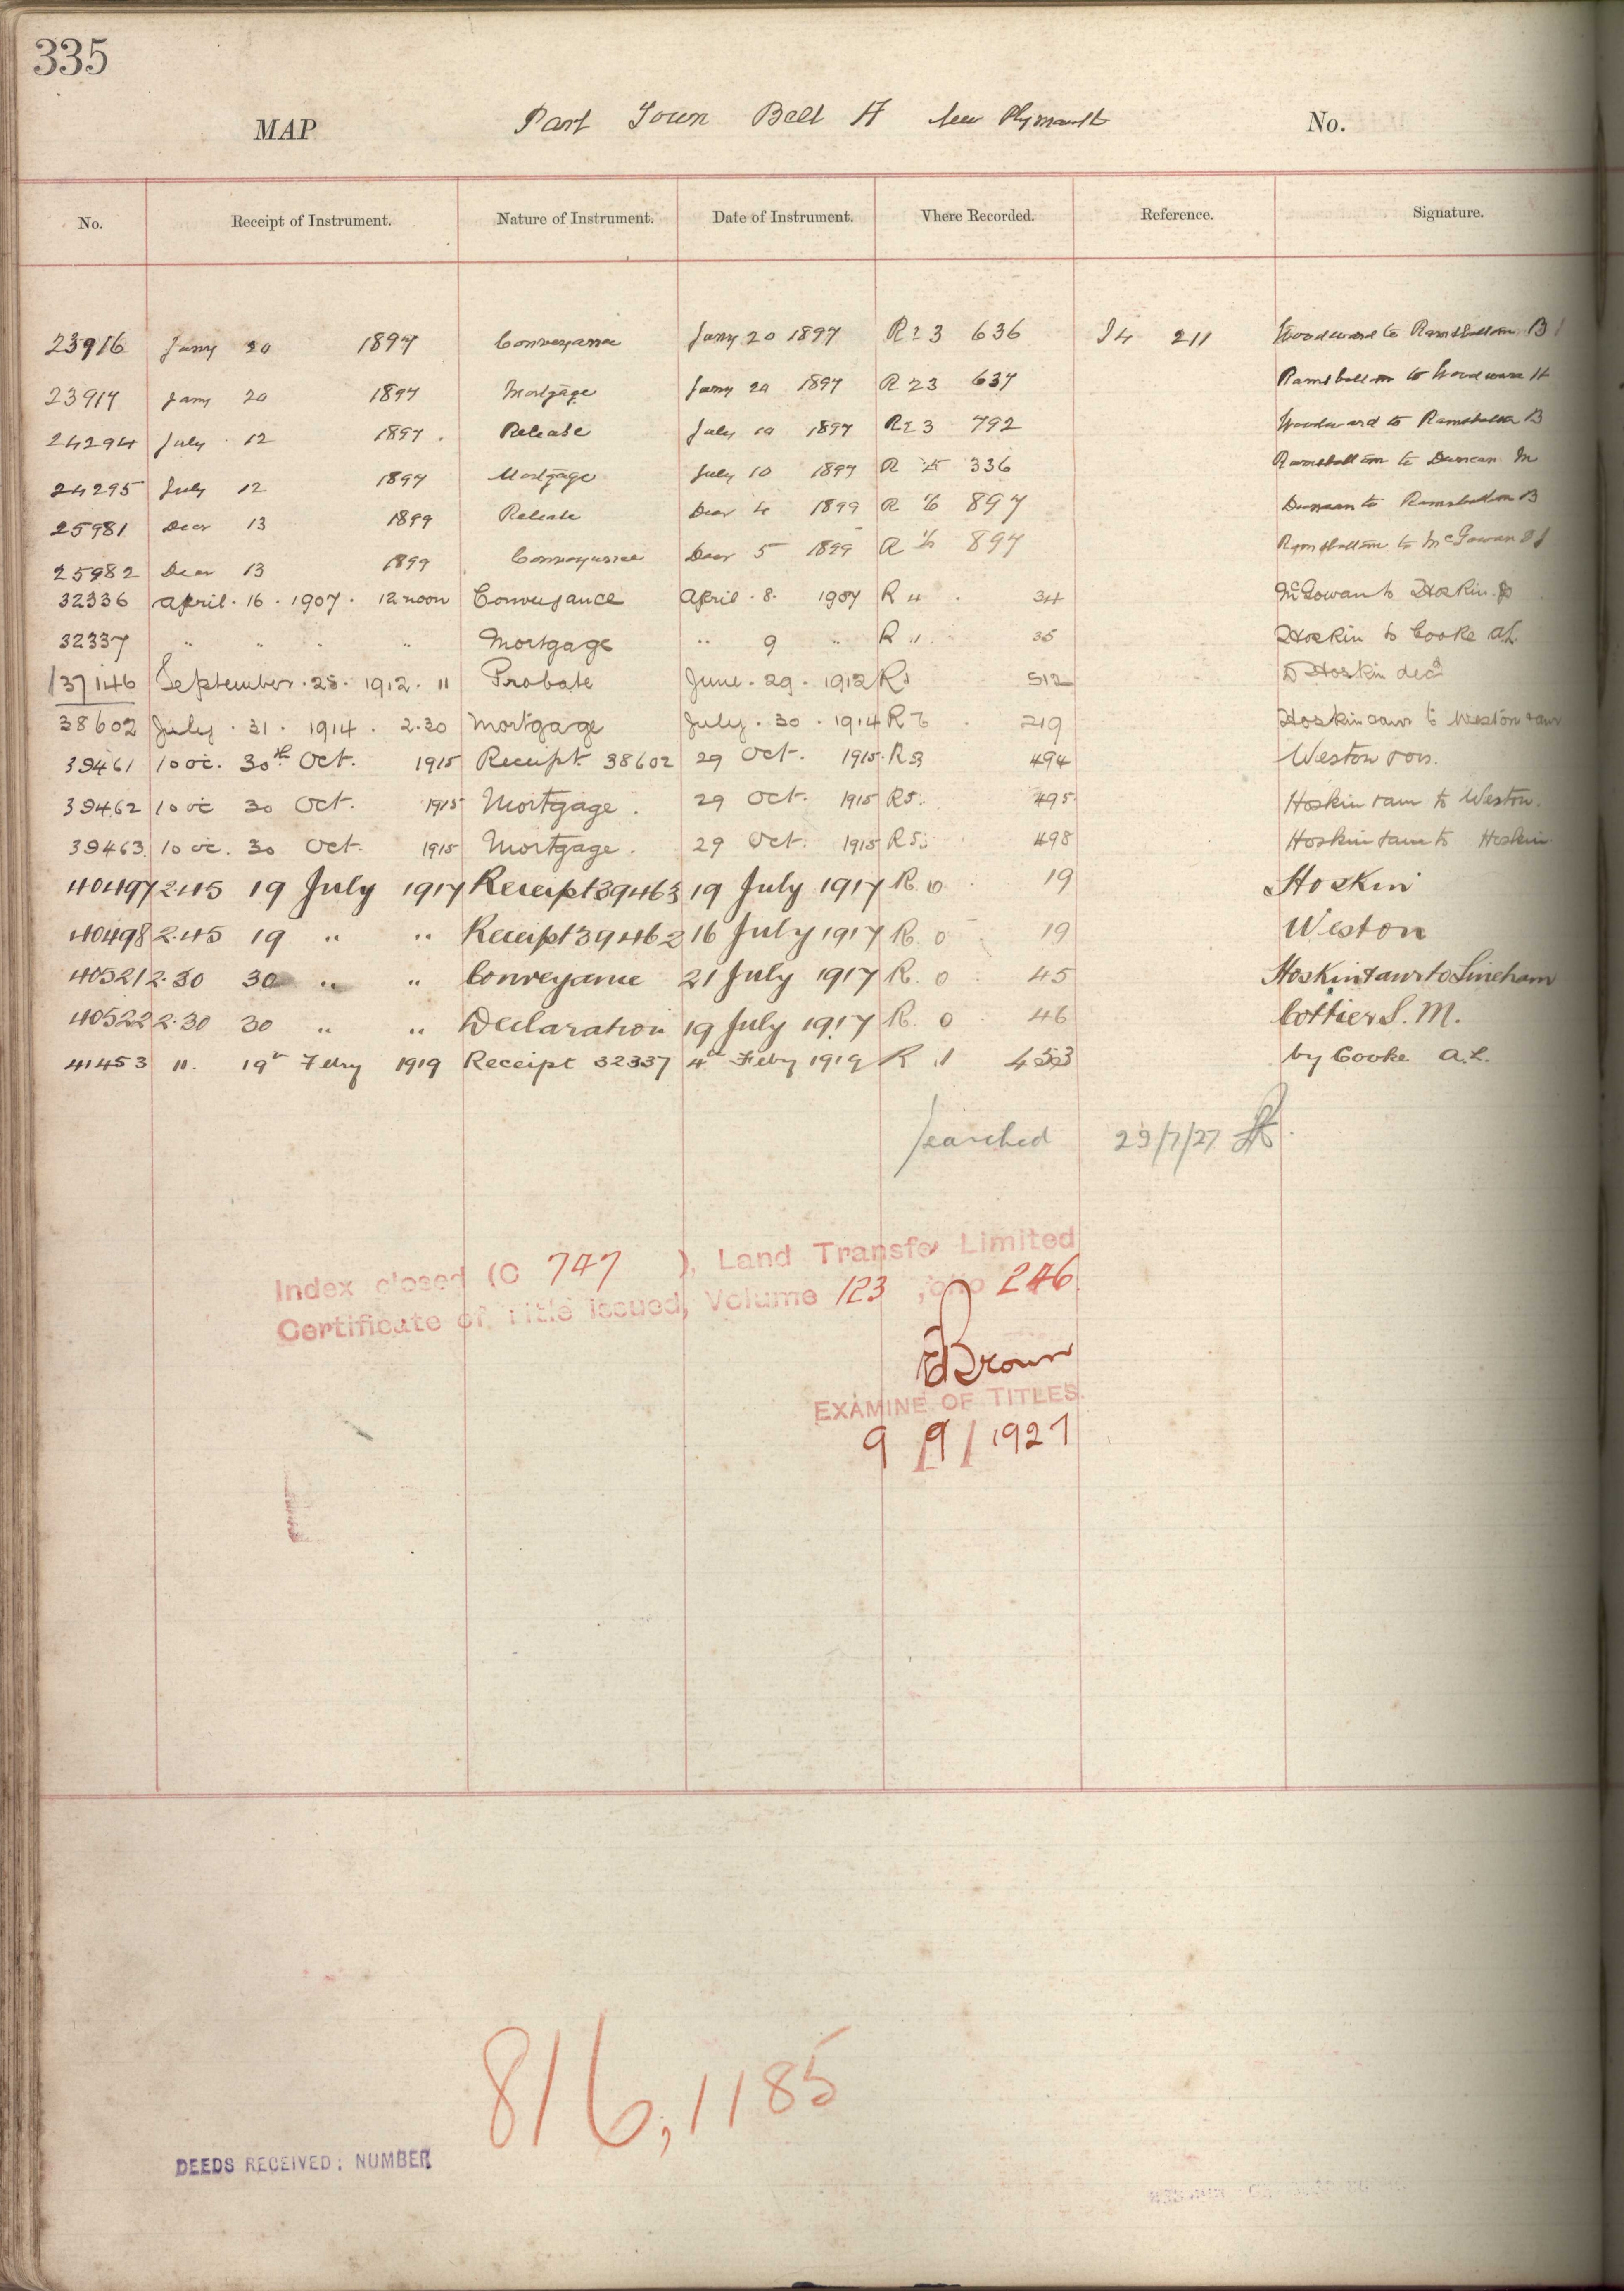 335
MAP Part Town Belt H New Plymouth No.
No. Receipt of Instrument. Nature of Instrument. Date of Instrument. Where Recorded. Reference. Signature.
23916 Jany 20 1897 Conveyance Jany 20 1897 R23 636 I4 211 Woodward to Ramsbottom B
23917 Jany 20 1897 Mortgage Jany 20 1897 R23 637 Ramsbottom to Woodward H
24294 July 12 1897. Release July 10 1897 R23 792 Woodward to Ramsbottom B
24295 July 12 1897 Mortgage July 10 1897 R 336 Ramsbottom to Duncan M
25981 Decr 13 1899 Release Decr 4 1899 R 897 Duncan to Ramsbottom B
25982 Decr 13 1899 Conveyance Decr 5 1899 R 897 Ramsbottom to McGowan
32336 April. 16. 1907. 12 noon Conveyance April. 8. 1907 R 34 McGowan to Hoskin
32337 " " " " Mortgage " 9 " R 35 Hoskin to Cooke
37146 September. 28. 1912. 11 Probate June. 29. 1912 R 512 D Hoskin decd
38602 July. 31. 1914. 2.30 Mortgage July. 30. 1914 R 219 Hoskin + anr to Weston + anr
39461 10 oc. 30th Oct. 1915 Receipt 38602 29 Oct. 1915. R 494 Weston + ors.
39462 10 oc 30 Oct. 1915 Mortgage. 29 Oct. 1915 R5. 495 Hoskin + anr to Weston.
39463. 10 oc. 30 Oct. 1915 Mortgage. 29 Oct. 1915 R5. 498 Hoskin + anr to Hoskin
40497 2.45 19 July 1917 Receipt 39463 19 July 1917 R. 19 Hoskin
40498 2.45 19 " " Receipt 39462 16 July 1917 R. 0 19 Weston
40521 2.30 30 " " Conveyance 21 July 1917 R. 0 45 Hoskin + anr to Lineham
40522 2.30 30 " " Declaration 19 July 1917 R. 0 46 Cottier S. M.
41453 11. 19th Feby 1919 Receipt 32337 4th Feby 1919 R 453 by Cooke A.L.
Searched 29/7/27
Index closed (C 747 ), Land Transfer Limited
Certificate of Title issued, Volume 123 folio 246.
Brown
EXAMINER OF TITLES.
9/9/1927
816, 1185
DEEDS RECEIVED: NUMBER